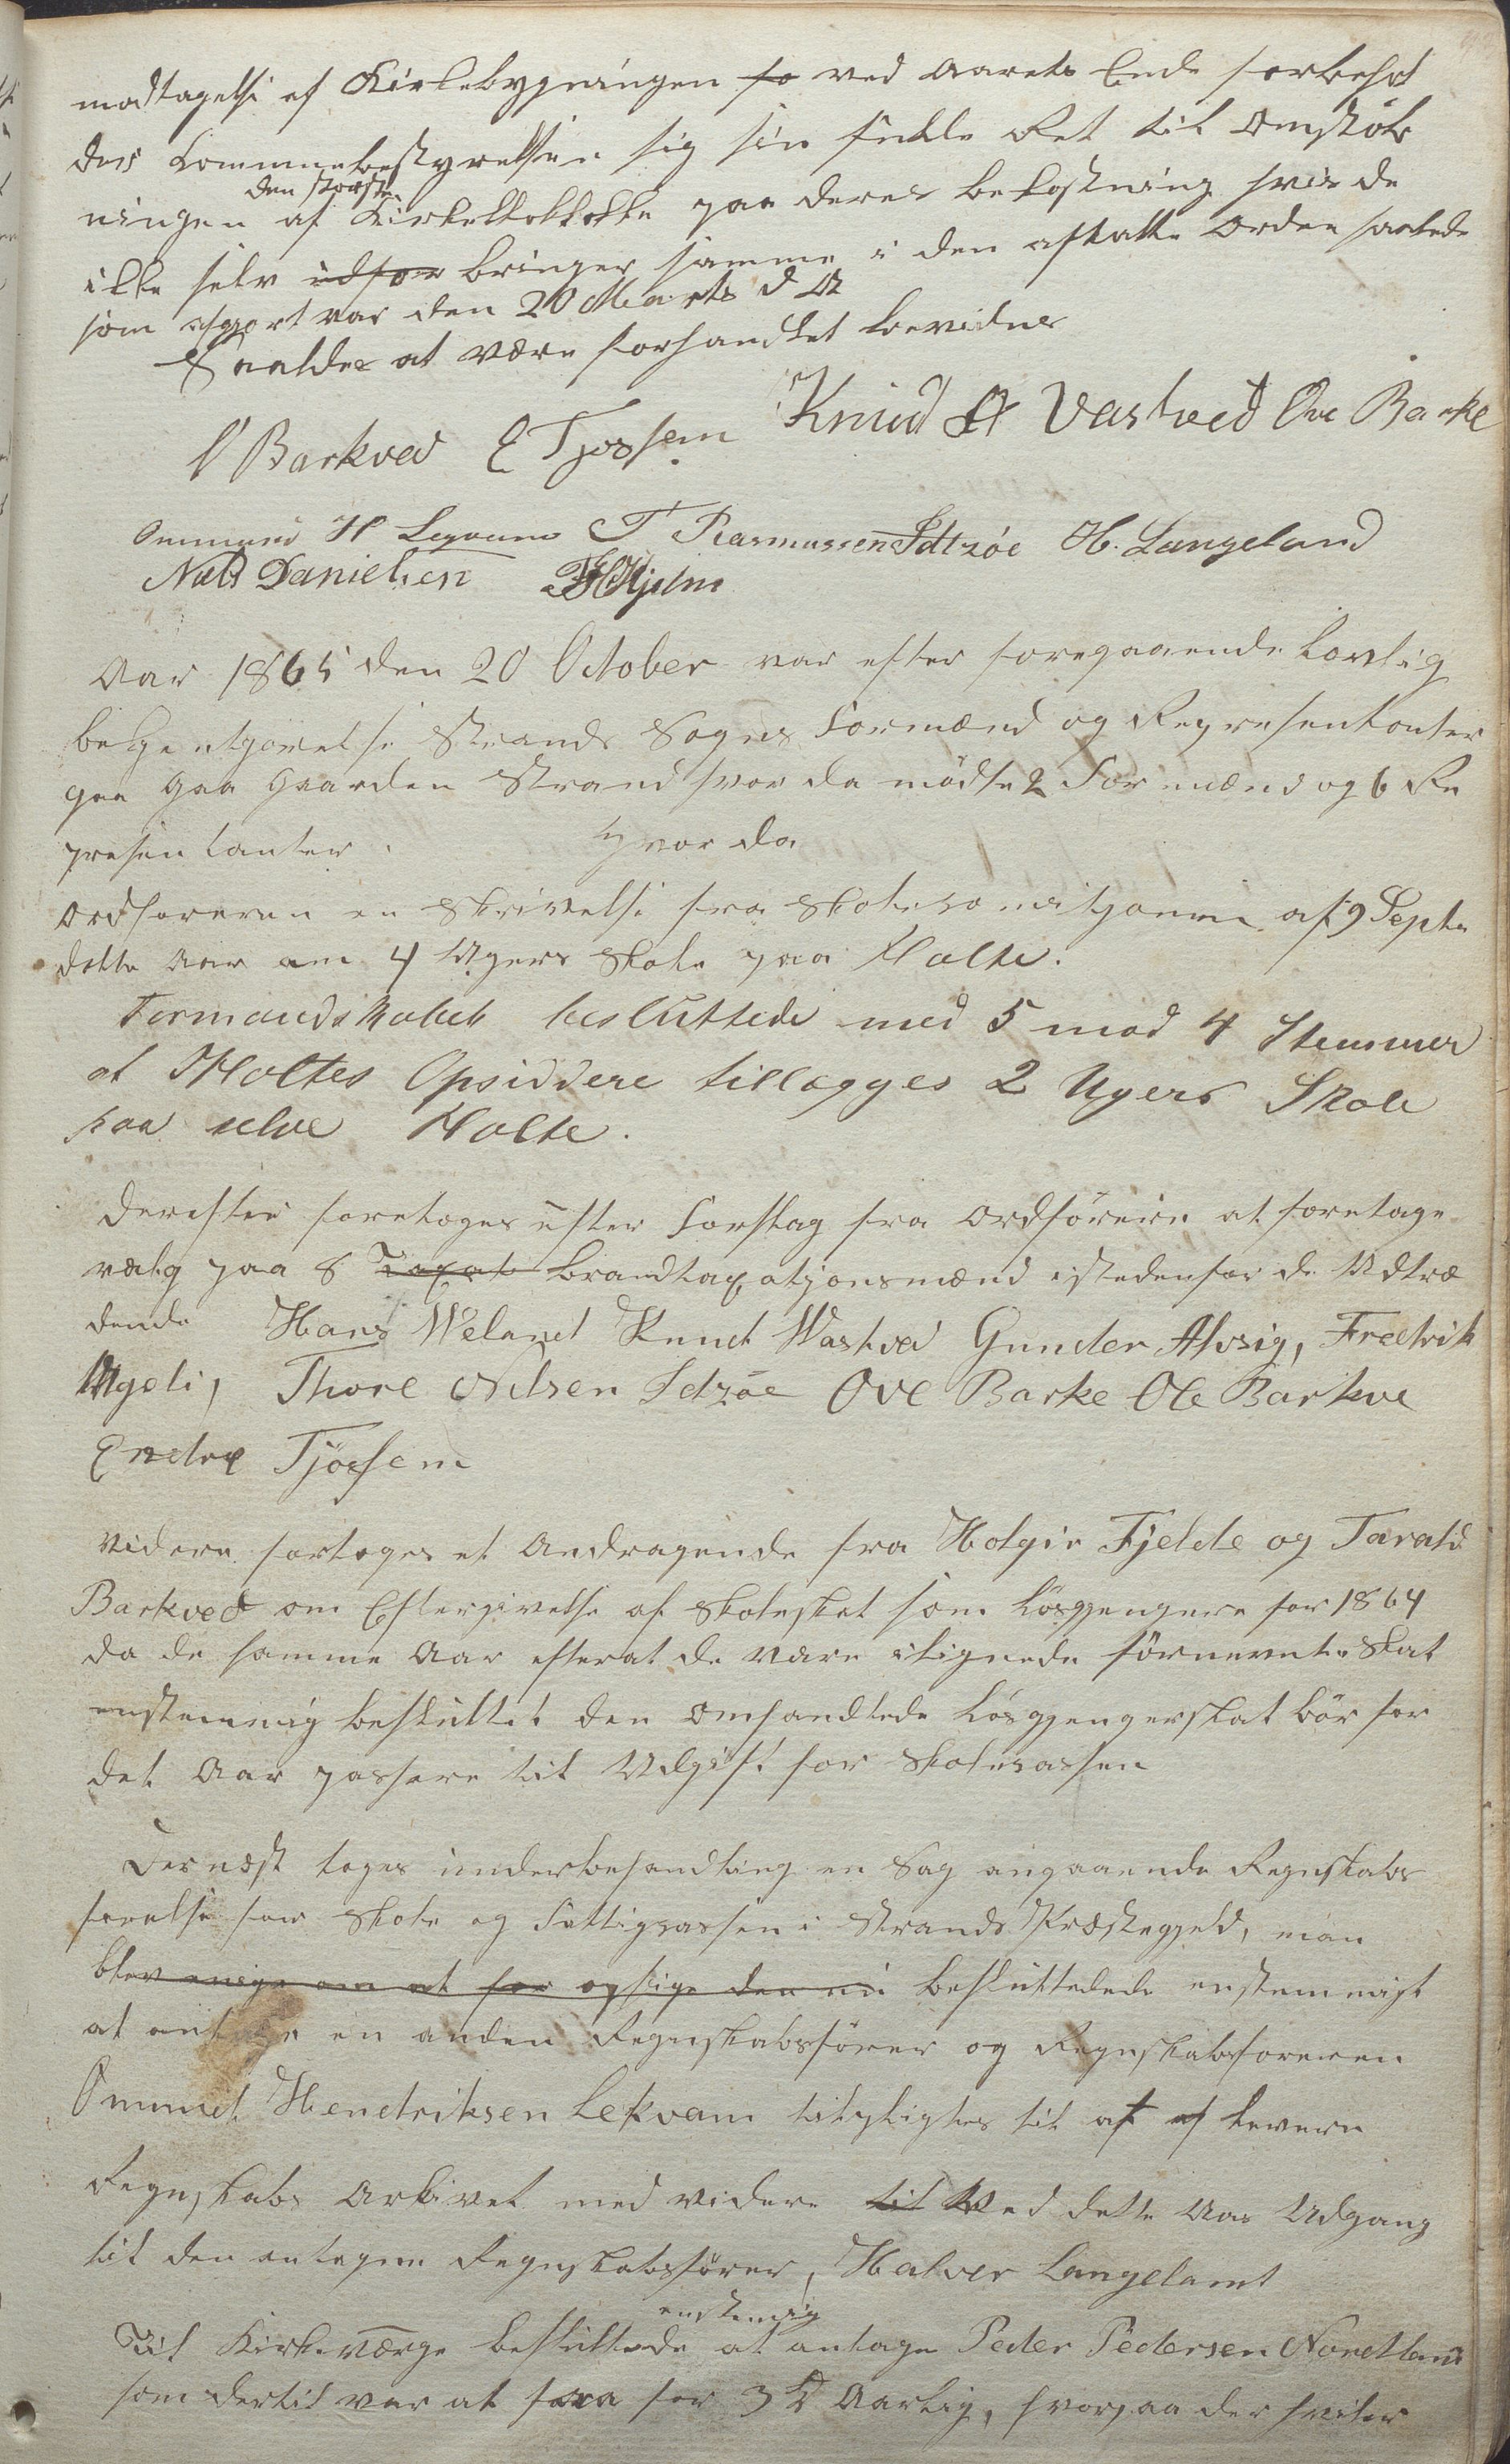 modtagelse af Kirkebygningen fo ved Aarets Ende forbehol
der Communebestyrelsen sig sin fulde Ret til Omstøb
ningen af den største Kirkeklokke paa deres bekostning hvis de
ikke selv udfør bringer samme i den aftalte Orden saalede
som afgjort var den 20 Marts d A
Saaledes at være forhandlet bevidnes
O Barkved E Tjossem Knud A Vastved Ove Barke
Ommund H Leqvam T Rasmussen Idtzøe H. Langeland
Niels Danielsen F Hjelm
Aar 1865 den 20 October var efter foregaaende Lovlig
bekjentgjørelse Strands Sogns Formænd og Representanter
paa Gaarden Strand hvor da mødte 2 Formænd og 6 Re
presentanter. hvor da
Ordføreren en Skrivelse fra Skolecomitjonen af 9 Septr
dette Aar om 4 Ugers Skole paa Holte.
Formandskabet besluttede med 5 mod 4 Stemmer
at Holtes Opsiddere tillægges 2 Ugers Skole
paa selve Holte.
Derefter foretoges efter Forslag fra Ordføreren at foretage
valg paa 8 Taxat brandtaxationsmænd istedenfor de Udtræ
dende Hans Weland Knud Wastved Gunder Alvsig, Fredrik
Ugeli, Thore Nilsen Idzøe Ove Barke Ole Barkve
Endre Tjøssem
videre fortoges et Andragende fra Holgir Fjelde og Tarald
Barkved om Eftergivelse af Skoleskat som Løsgjengere for 1864
da de samme Aar efterat de vare ilignede førnevnte Skat
enstemmig besluttet den omhandlede Løsgjengerskat bør for
det Aar passere til Udgift for Skolecassen
Dernæst toges underbehandling en Sag angaaende Regnskabs
førelse for Skole og Fattigcassen i Strands Præstegjeld, man
blev enige om at for opsige den nu besluttedede enstemmigt
at antage en anden Regnskabsfører og Regnskabsføreren
Ommund Hendriksen Lekvam tilpligtes til at af levere
Regnskabs Arkivet med videre til Ved dette Aar Udgang
til den antagne Regnskabsfører, Halver Langelamt
Til Kirkeværge besluttede enstemig at antage Peder Pedersen Nordland
som dertil var at faaa for 3 Spd Aarlig, hvorpaa der hviler